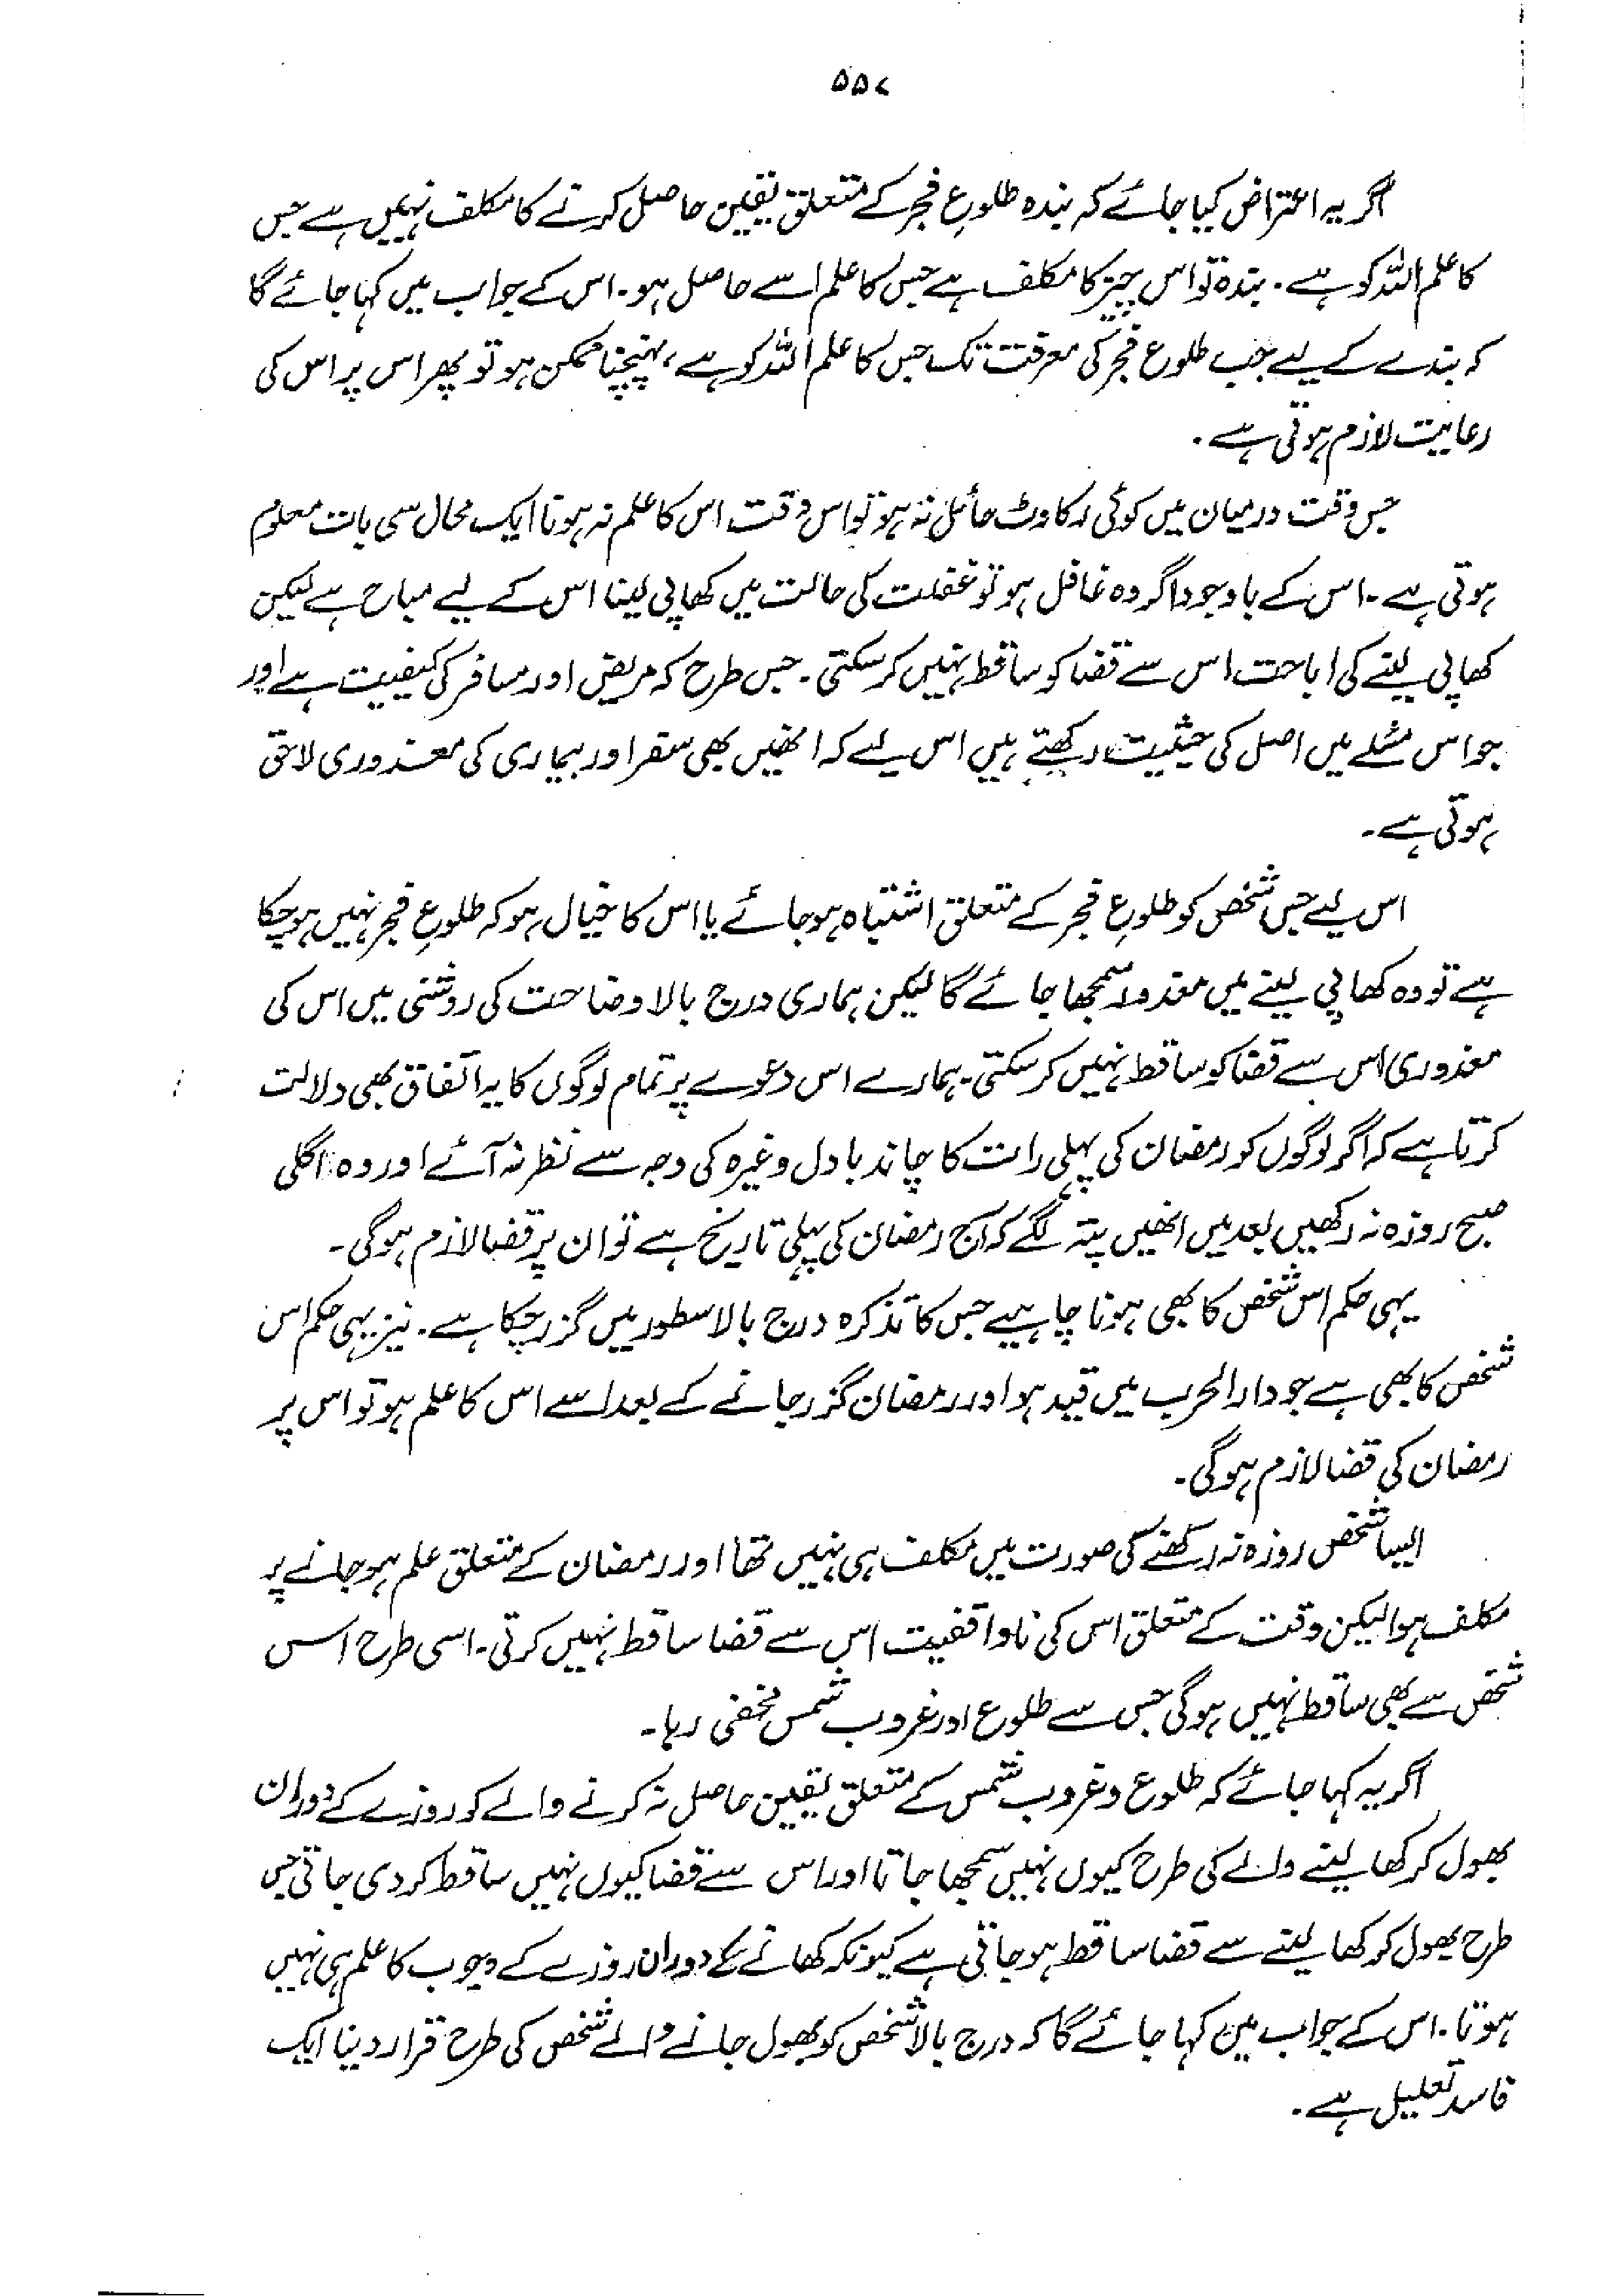 ۵۵۷
اگر یہ اعتراض کیا جائے کہ بندہ طلوعِ فجر کے متعلق یقین حاصل کرنے کا مکلف نہیں ہے جس
کا علم اللہ کو ہے۔ بندہ تو اس چیز کا مکلف ہے جس کا علم اسے حاصل ہو۔ اس کے جواب میں کہا جائے گا
کہ بندے کے لیے جب طلوع فجر کی معرفت تک جس کا علم اللہ کو ہے، پہنچنا ممکن ہو تو پھر اس پر اس کی
رعایت لازم ہوتی ہے۔
جس وقت درمیان میں کوئی رکاوٹ حائل نہ ہو تو اس وقت اس کا علم نہ ہونا ایک محال سی بات معلوم
ہوتی ہے۔ اس کے باوجود اگر وہ غافل ہو تو غفلت کی حالت میں کھا پی لینا اس کے لیے مباح ہے لیکن
کھا پی لینے کی اباحت اس سے قضا کو ساقط نہیں کر سکتی۔ جس طرح کہ مریض اور مسافر کی کیفیت ہے اور
جو اس مسئلے میں اصل کی حیثیت رکھتے ہیں اس لیے کہ انھیں بھی سفر اور بیماری کی معذوری لاحق
ہوتی ہے۔
اس لیے جس شخص کو طلوعِ فجر کے متعلق اشتباہ ہو جائے یا اس کا خیال ہو کہ طلوعِ فجر نہیں ہو چکا
ہے تو وہ کھا پی لینے میں معذور سمجھا جائے گا لیکن ہماری درج بالا وضاحت کی روشنی میں اس کی
معذوری اس سے قضا کو ساقط نہیں کر سکتی۔ ہمارے اس دعوے پر تمام لوگوں کا یہ اتفاق بھی دلالت
کرتا ہے کہ اگر لوگوں کو رمضان کی پہلی رات کا چاند بادل وغیرہ کی وجہ سے نظر نہ آئے اور وہ اگلی
صبح روزہ نہ رکھیں بعد میں انھیں پتہ لگے کہ آج رمضان کی پہلی تاریخ ہے تو ان پر قضا لازم ہو گی۔
یہی حکم اس شخص کا بھی ہونا چاہیے جس کا تذکرہ درج بالا سطور میں گزر چکا ہے۔ نیز یہی حکم اس
شخص کا بھی ہے جو دارالحرب میں قید ہو اور رمضان گزر جانے کے بعد اسے اس کا علم ہو تو اس پر
رمضان کی قضا لازم ہوگی۔
ایسا شخص روزہ نہ رکھنے کی صورت میں مکلف ہی نہیں تھا اور رمضان کے متعلق علم ہو جانے پر
مکلف ہوا لیکن وقت کے متعلق اس کی ناواقفیت اس سے قضا ساقط نہیں کرتی۔ اسی طرح اس
شخص سے بھی ساقط نہیں ہوگی جس سے طلوع اور غروب شمس مخفی رہا۔
اگر یہ کہا جائے کہ طلوع و غروب شمس کے متعلق یقین حاصل نہ کرنے والے کو روزے کے دوران
بھول کر کھا لینے والے کی طرح کیوں نہیں سمجھا جاتا اور اس سے قضا کیوں نہیں ساقط کر دی جاتی جس
طرح بھول کر کھا لینے سے قضا ساقط ہو جاتی ہے کیونکہ کھانے کے دوران روزے کے وجوب کا علم ہی نہیں
ہوتا۔ اس کے جواب میں کہا جائے گا کہ درج بالا شخص کو بھول جانے والے شخص کی طرح قرار دینا ایک
فاسد تعلیل ہے۔